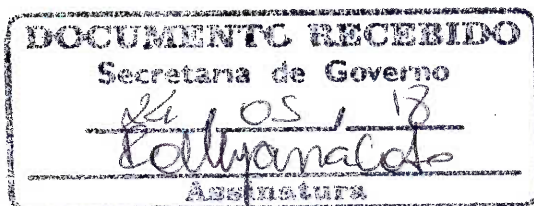 DOCUMENTO RECEBIDO
Secretaria de Governo
24, 05, 18
Assinatura